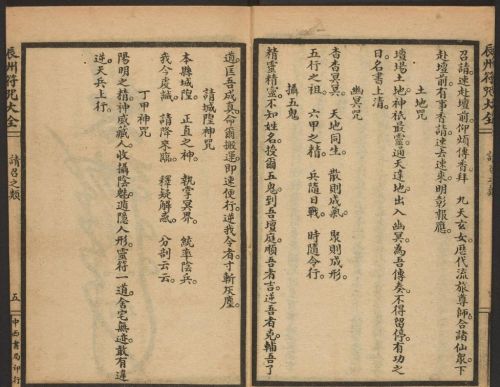 召請。速赴壇前。仰煩傳香拜　九天玄女。歷代流旅尊師。合諸仙衆。下
赴壇前。有事香請。速去速來。明彰報應。
土地咒
壇場土地。神祇最靈。通天達地。出入幽冥。為吾傳奏。不得留停。有功之
日。名書上清。
幽冥咒
杳杳冥冥　天地同生。散則成氣　聚則成形
五行之祖。六甲之精　兵隨日戰。時隨令行。
攝五鬼
精靈精靈。不知姓名。授爾五鬼。到吾壇庭。順吾者吉。逆吾者兇。輔吾了
道。匡吾成真。命爾搬運。即速便行。逆我令者。寸斬灰塵。
請城隍神咒
本縣城隍。正直之神。執掌冥界。統率陰兵。
我今虔誠。請降來臨。釋疑解惑。分剖云云。
丁甲神咒
陽明之精。神威藏人。收攝陰魅。遁隱人形。靈符一道。舍宅無迹。敢有違
逆。天兵上行。
辰州符咒大全
請召之類
五
中西書局印行